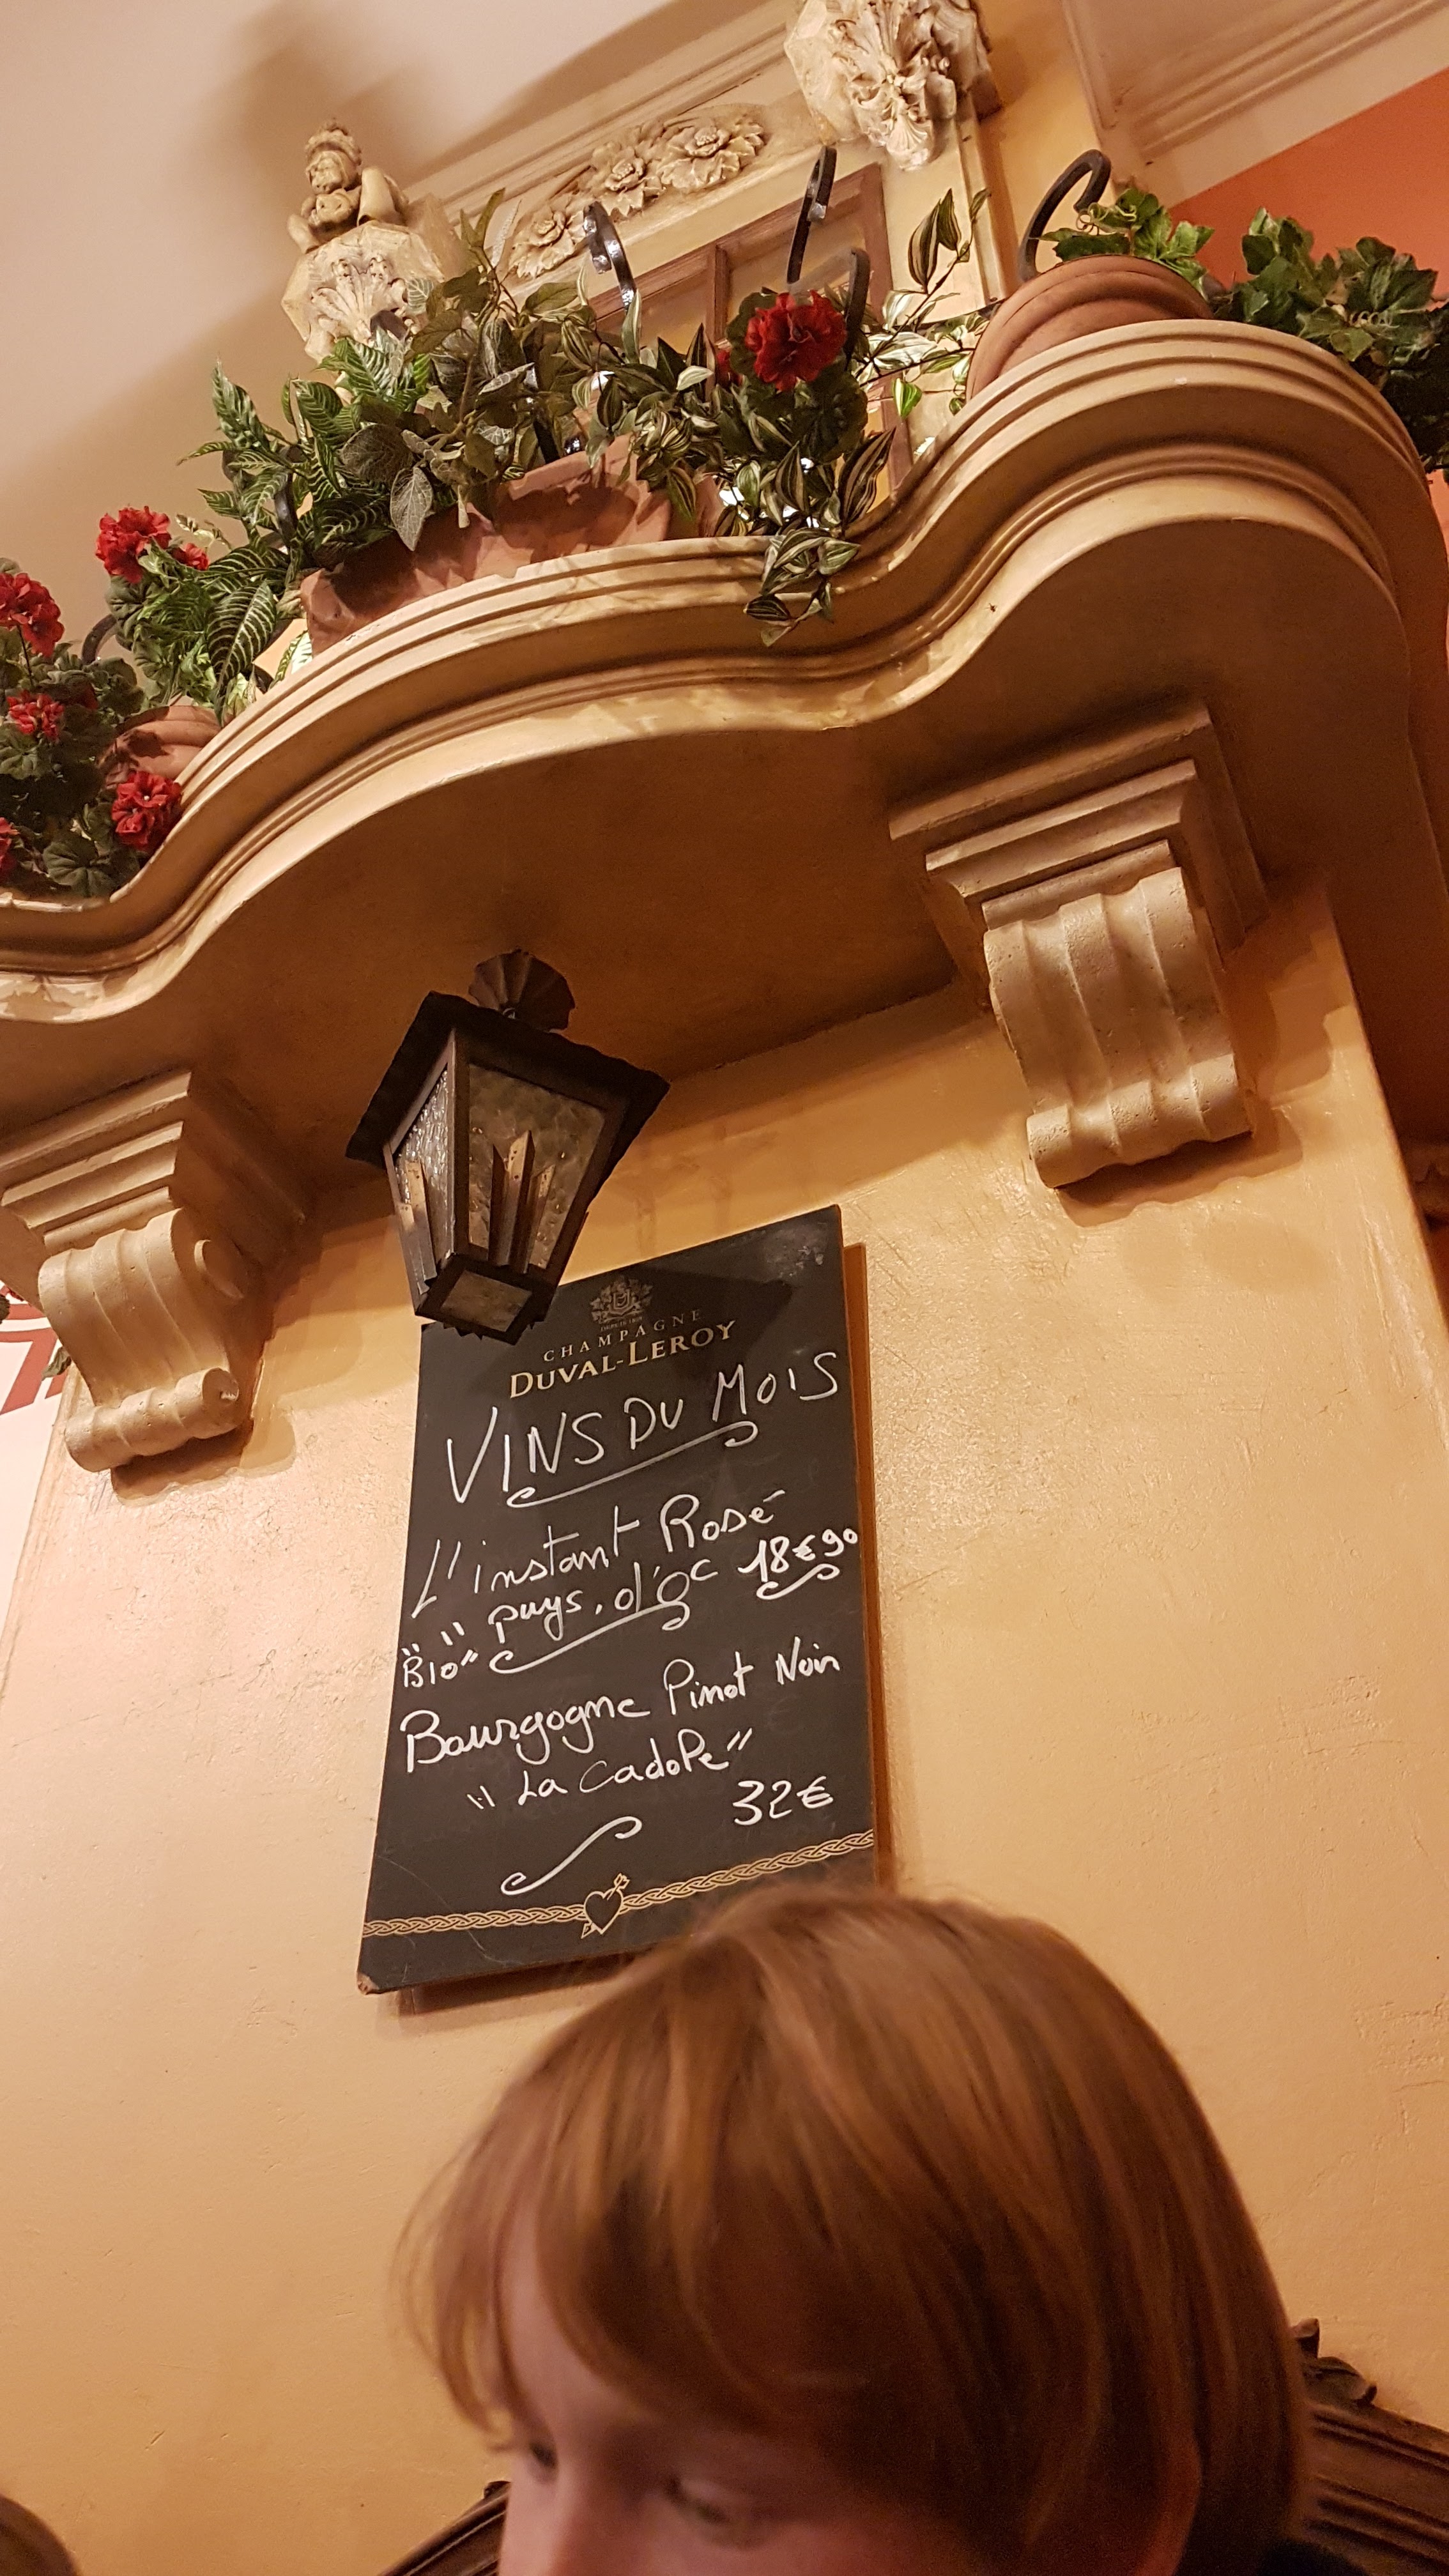 CHAMPAGNE
DUVAL-LEROY
VINS DU MOIS
L'instant Rosé
"Bio" pays. d'Oc 18€90
Bourgogne Pinot Noir
"La Cadole"
32€